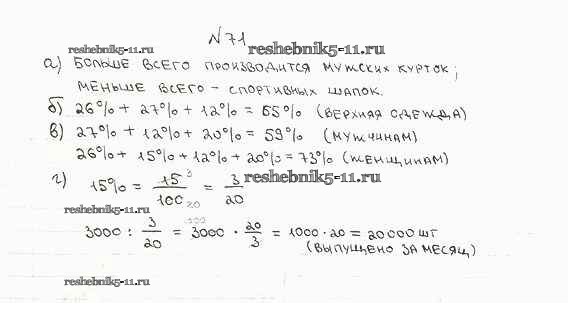 №71
reshebnik5-11.ru reshebnik5-11.ru
а) БОЛЬШЕ ВСЕГО ПРОИЗВОДИТСЯ МУЖСКИХ КУРТОК;
МЕНЬШЕ ВСЕГО - СПОРТИВНЫХ ШАПОК.
б) 26% + 27% + 12% = 65% (ВЕРХНЯЯ ОДЕЖДА)
в) 27% + 12% + 20% = 59% (МУЖЧИНАМ)
26% + 15% + 12% + 20% = 73% (ЖЕНЩИНАМ)
г) 15% = 15 3 / 100 20 = 3/20 reshebnik5-11.ru
reshebnik5-11.ru
3000 : 3/20 = 3000 · 20/3 = 1000 · 20 = 20000 ШТ
(ВЫПУЩЕНО ЗА МЕСЯЦ)
reshebnik5-11.ru